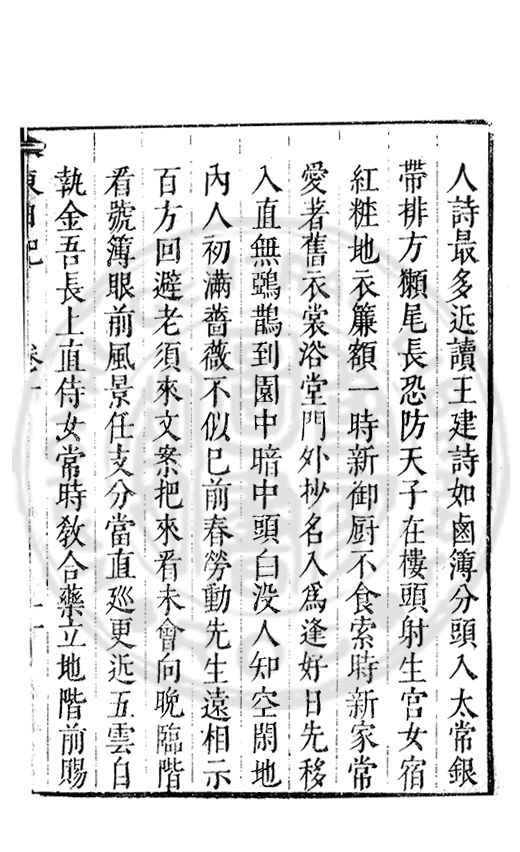 人詩最多近讀王建詩如鹵簿分頭入太常銀
帶排方獺尾長恐防天子在樓頭射生宫女宿
紅粧地衣簾額一時新御厨不食索時新家常
愛著舊衣裳浴堂門外抄名入爲逢好日先移
入直無鵶鵲到園中暗中頭白没人知空閑地
內人初滿薔薇不似巳前春勞動先生遠相示
百方回避老須來文案把來看未會向晚臨階
看號簿眼前風景任支分當直廵更近五雲白
執金吾長上直侍女常時敎合藥立地階前賜
卷一